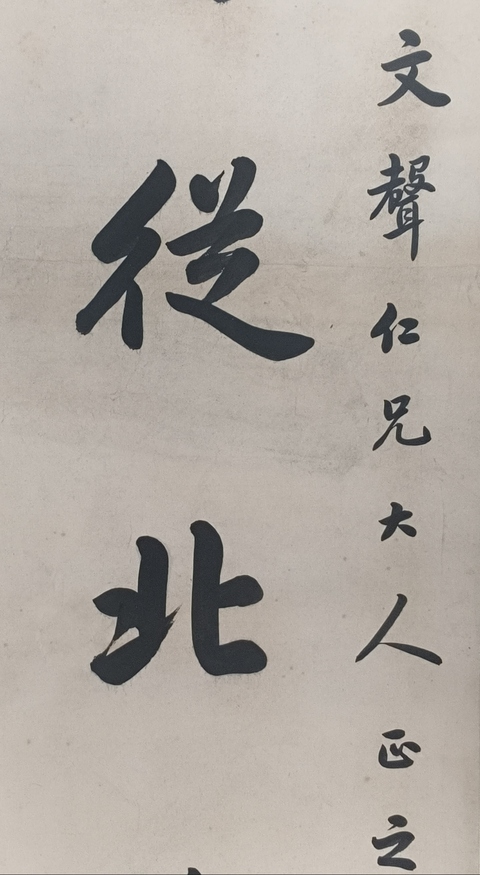 文聲仁兄大人正之
從北